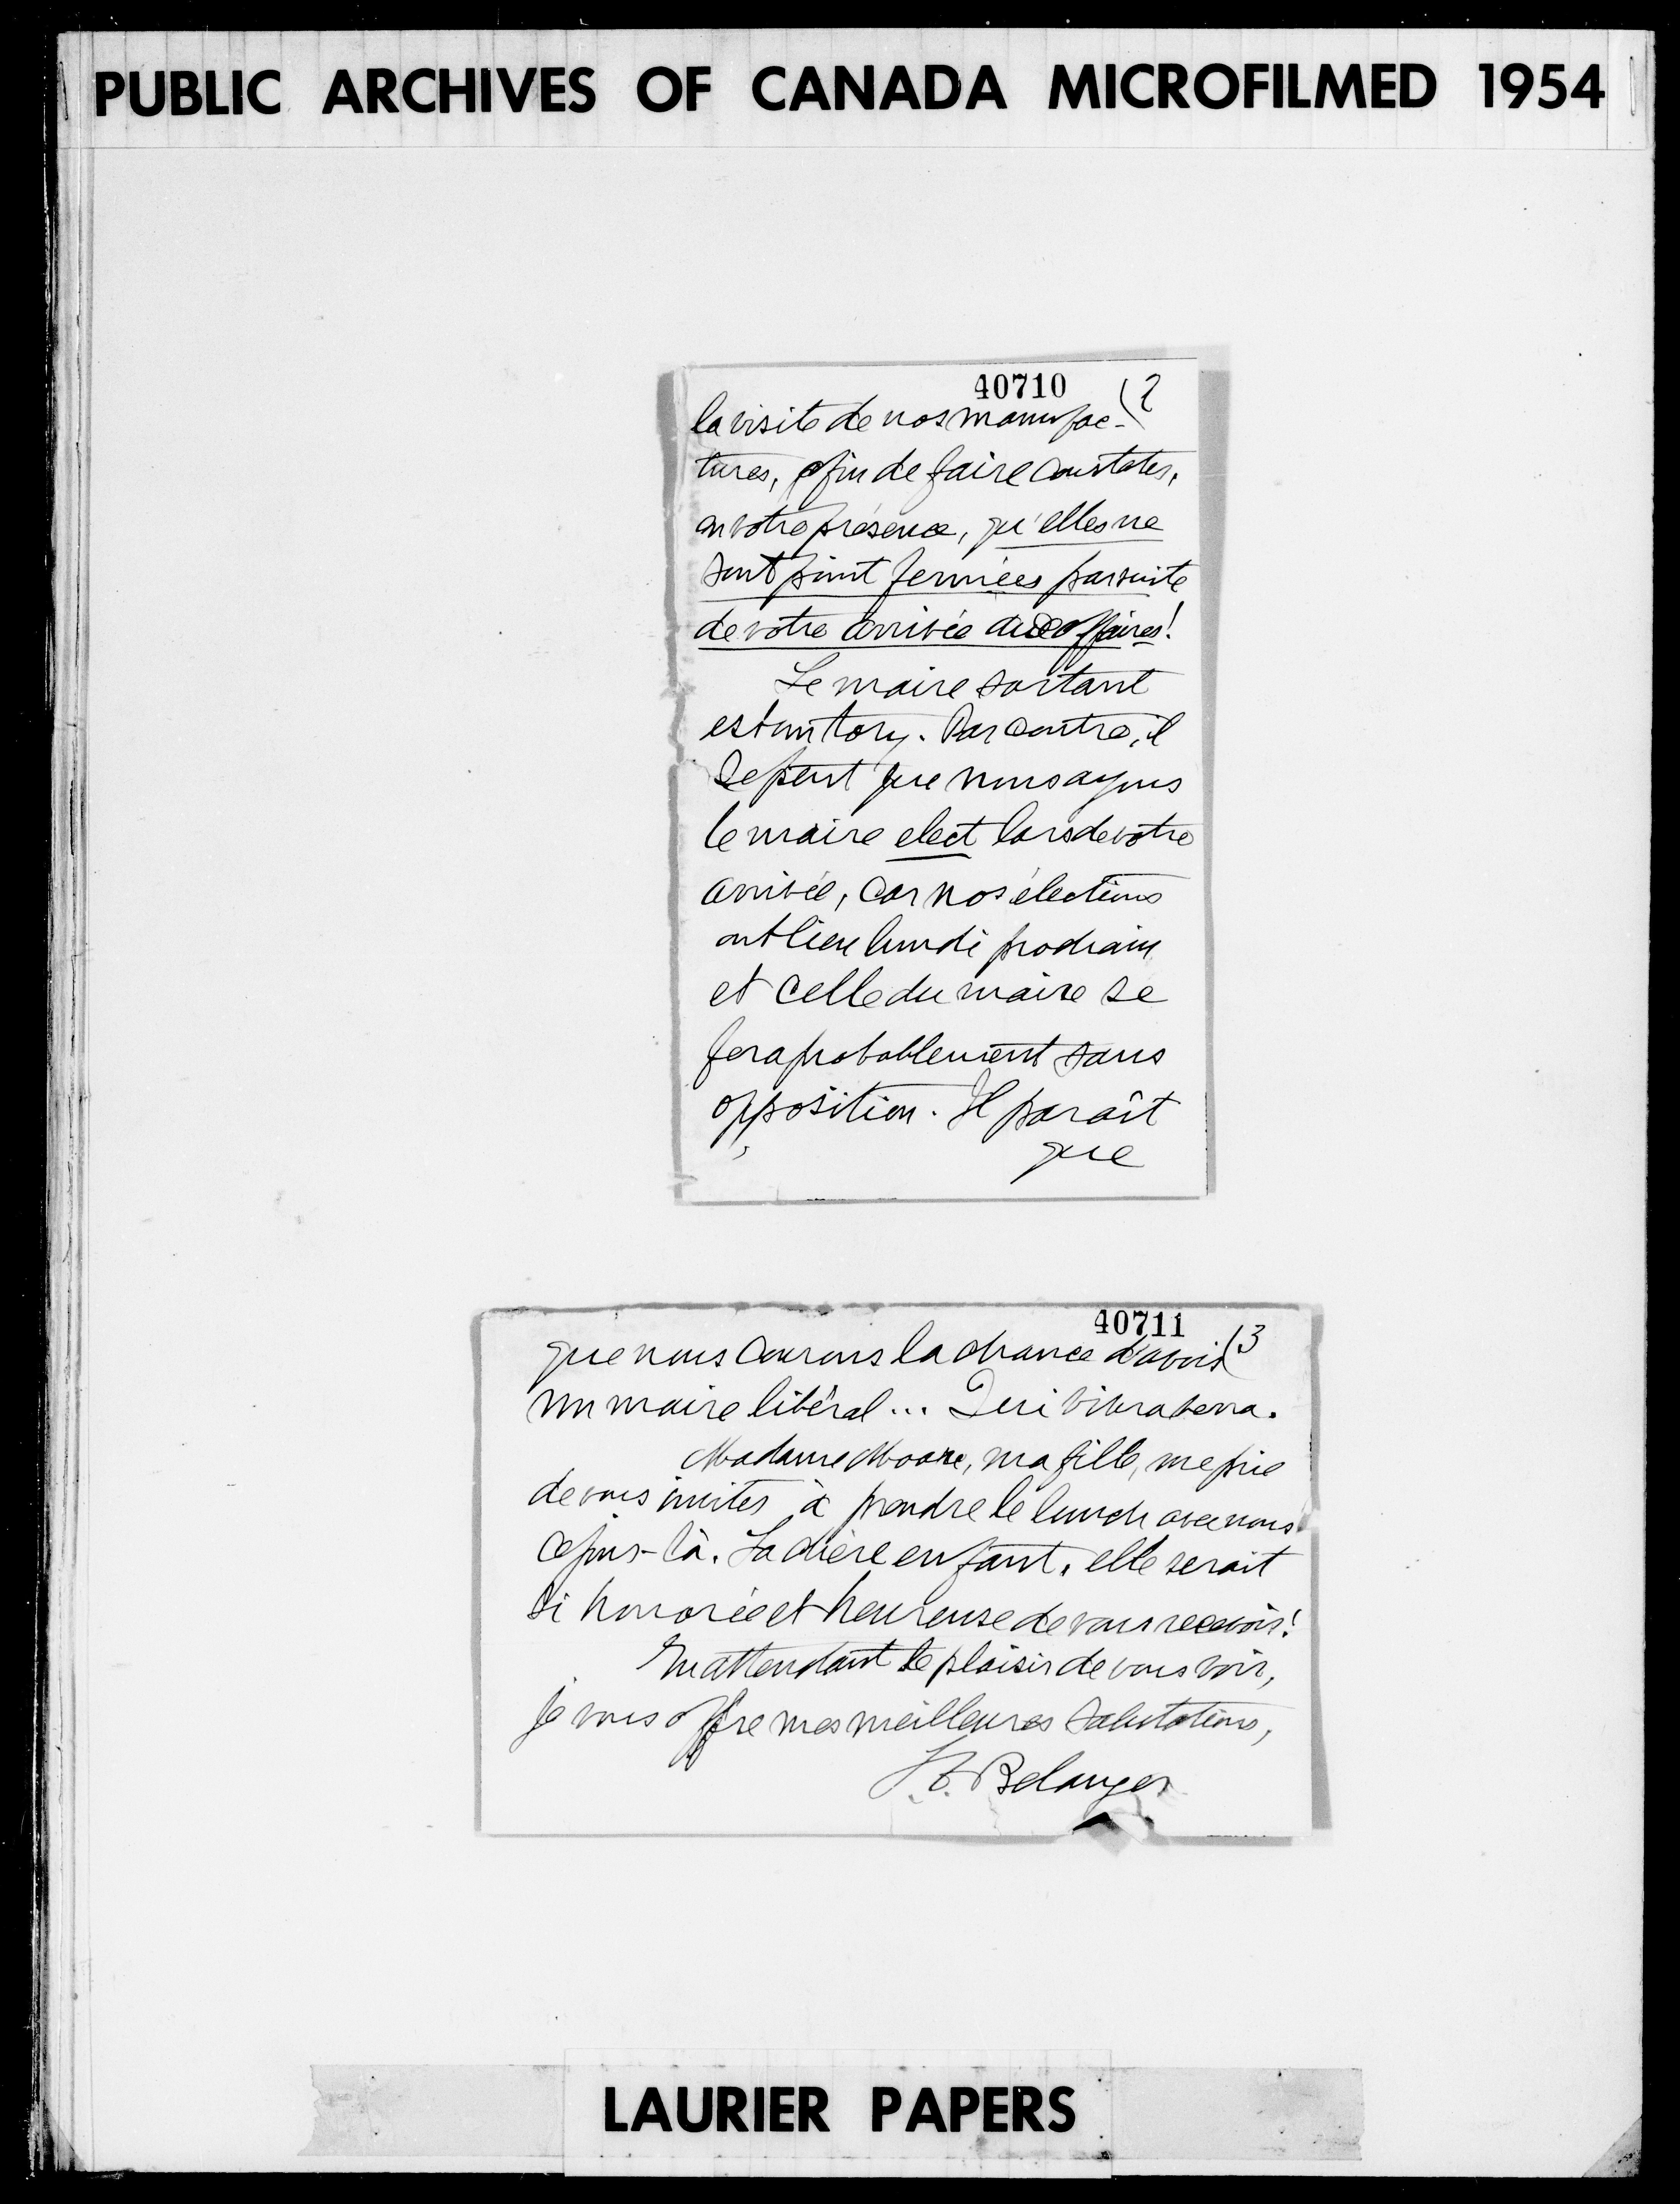 PUBLIC ARCHIVES OF CANADA MICROFILMED 1954
40710 (2
la visite de nos manufac-
tures, afin de faire constater,
en votre présence, qu'elles ne
sont point fermées par suite
de votre arrivée aux affaires!
Le maire sortant
est un tory. Par contre, il
se peut que nous ayons
le maire elect lors de votre
arrivée, car nos élections
ont lieu lundi prochain
et celle du maire se
fera probablement sans
opposition. Il paraît
que
40711 (3
que nous courons la chance d'avoir
un maire libéral... Qui vivra verra.
Madame Moore, ma fille, me prie
de vous inviter à prendre le lunch avec nous
ce jour-là. La chère enfant, elle serait
si honorée et heureuse de vous recevoir!
En attendant le plaisir de vous voir,
je vous offre mes meilleures salutations,
Belanger
LAURIER PAPERS